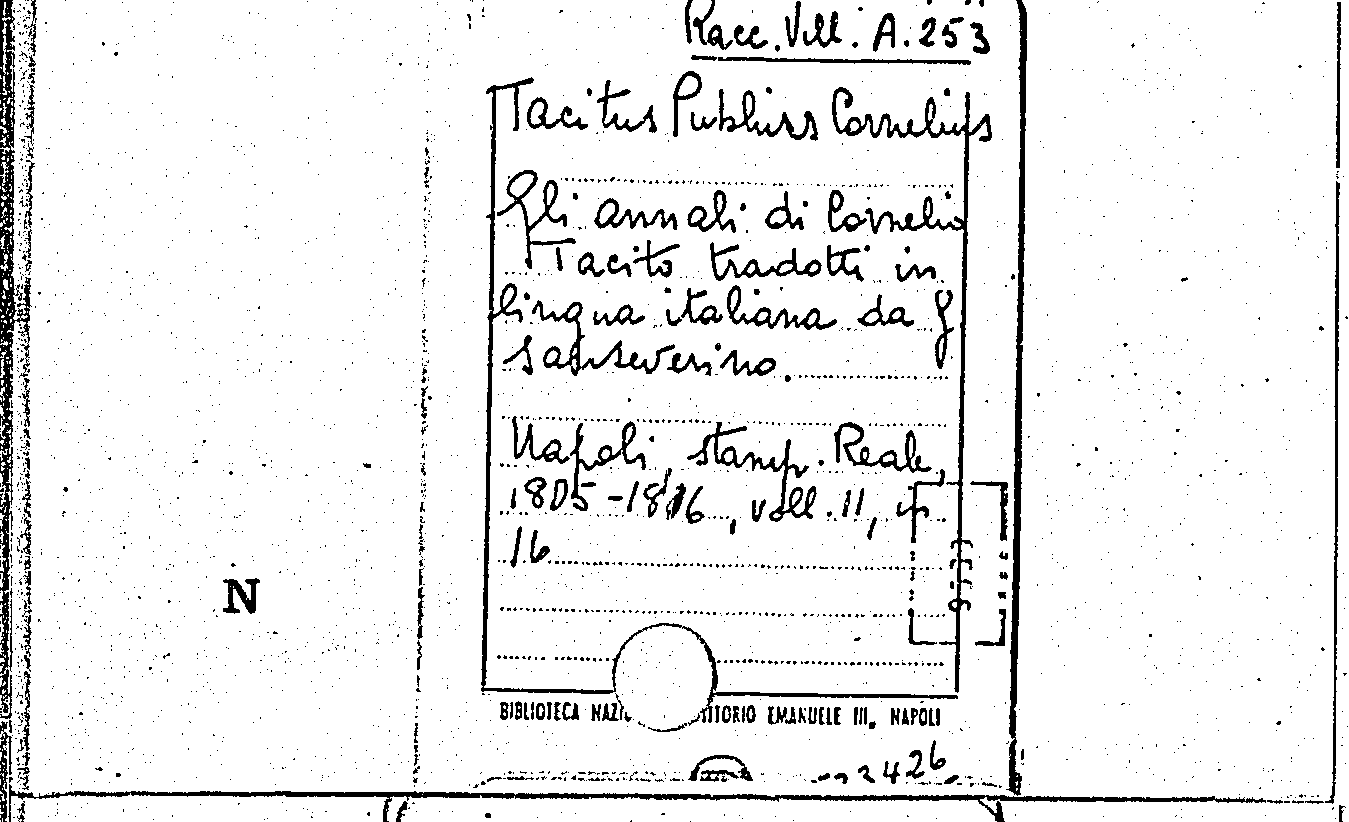 Racc. Vill. A. 253
Tacitus Publius Cornelius
Gli annali di Cornelio
Tacito tradotti in
lingua italiana da G
Sanseverino.
Napoli, stamp. Reale,
1805-1816, voll. 11, in
16
N
BIBLIOTECA VITTORIO EMANUELE III. NAPOLI